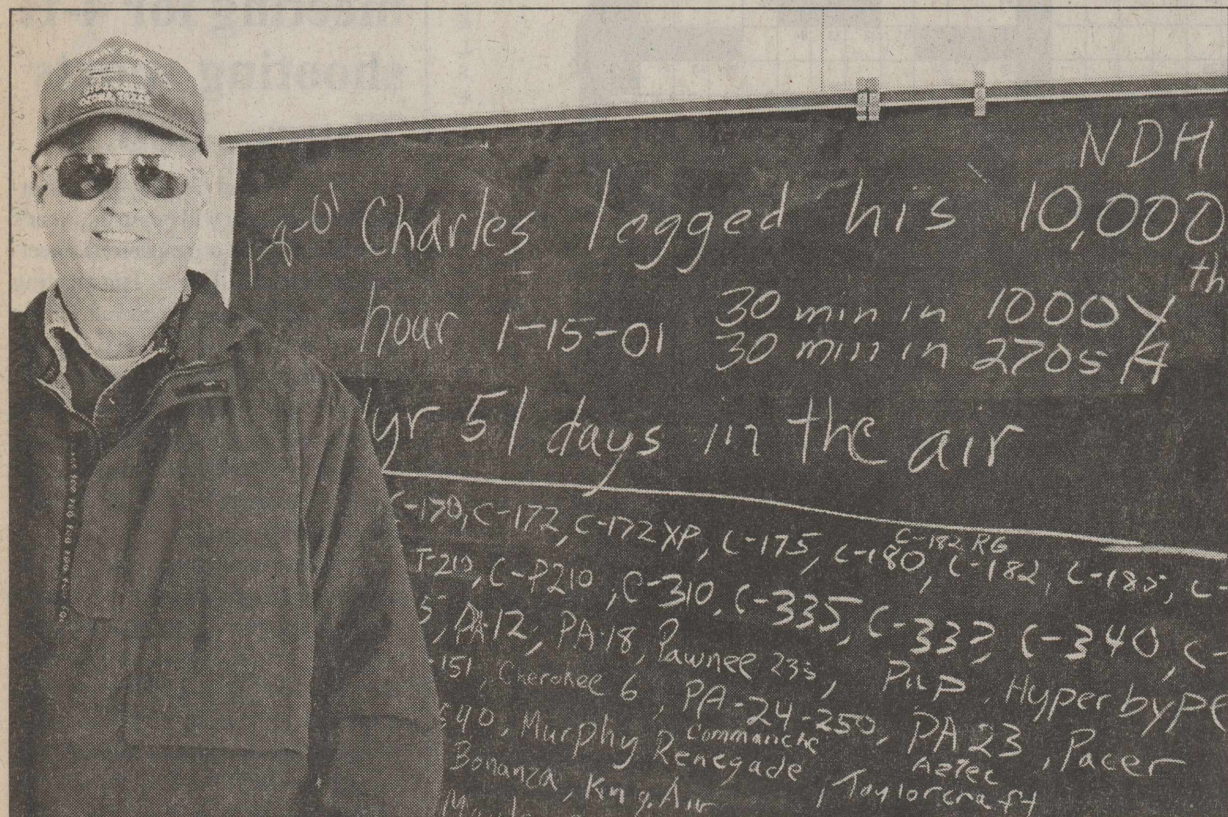 OZONA, TEXAS
NDH
1-8-01 Charles logged his 10,000
th
hour 1-15-01 30 min in 1000Y
30 min in 2705A
1yr 51 days in the air
C-170, C-172, C-172XP, C-175, C-180, C-182, C-185, C-
C-182 RG
T-210, C-P210, C-310, C-335, C-337, C-340, C-
5, PA-12, PA-18, Pawnee 235, Pup, Hyperbype
-151, Cherokee 6, PA-24-250, PA 23, Pacer
Commanche Aztec
540, Murphy Renegade, Taylorcraft
Bonanza, King Air